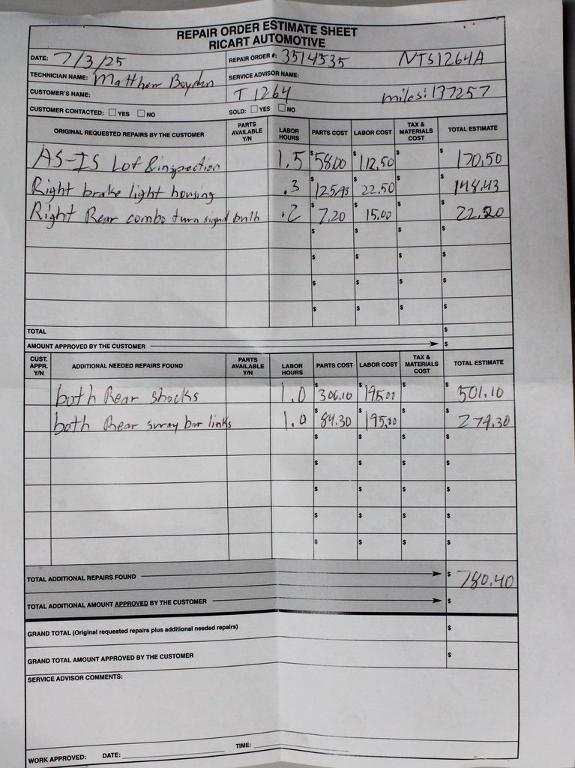 REPAIR ORDER ESTIMATE SHEET
RICART AUTOMOTIVE
DATE: 7/3/25 REPAIR ORDER #: 3514535 NTS1264A
TECHNICIAN NAME: Matthew Boyden SERVICE ADVISOR NAME:
CUSTOMER'S NAME: T 1264 miles: 137257
CUSTOMER CONTACTED: ☐ YES ☐ NO SOLD: ☐ YES ☐ NO
ORIGINAL REQUESTED REPAIRS BY THE CUSTOMER PARTS AVAILABLE Y/N LABOR HOURS PARTS COST LABOR COST TAX & MATERIALS COST TOTAL ESTIMATE
AS-IS Lot & inspection 1.5 $58.00 $112.50 $ 170.50
Right brake light housing .3 $125.93 $22.50 $
Right Rear combo turn signal bulb .2 $7.20 $15.00 $ 22.20
$ $ $ $
$ $ $ $
$ $ $ $
$ $ $ $
TOTAL $
AMOUNT APPROVED BY THE CUSTOMER $
CUST. APPR. Y/N ADDITIONAL NEEDED REPAIRS FOUND PARTS AVAILABLE Y/N LABOR HOURS PARTS COST LABOR COST TAX & MATERIALS COST TOTAL ESTIMATE
both Rear shocks 1.0 $306.10 $195.00 $ $501.10
both Rear sway bar links 1.0 $84.30 $195.00 $ $279.30
$ $ $ $
$ $ $ $
$ $ $ $
$ $ $ $
$ $ $ $
TOTAL ADDITIONAL REPAIRS FOUND $780.40
TOTAL ADDITIONAL AMOUNT APPROVED BY THE CUSTOMER $
GRAND TOTAL (Original requested repairs plus additional needed repairs) $
GRAND TOTAL AMOUNT APPROVED BY THE CUSTOMER $
SERVICE ADVISOR COMMENTS:
WORK APPROVED: DATE: TIME: